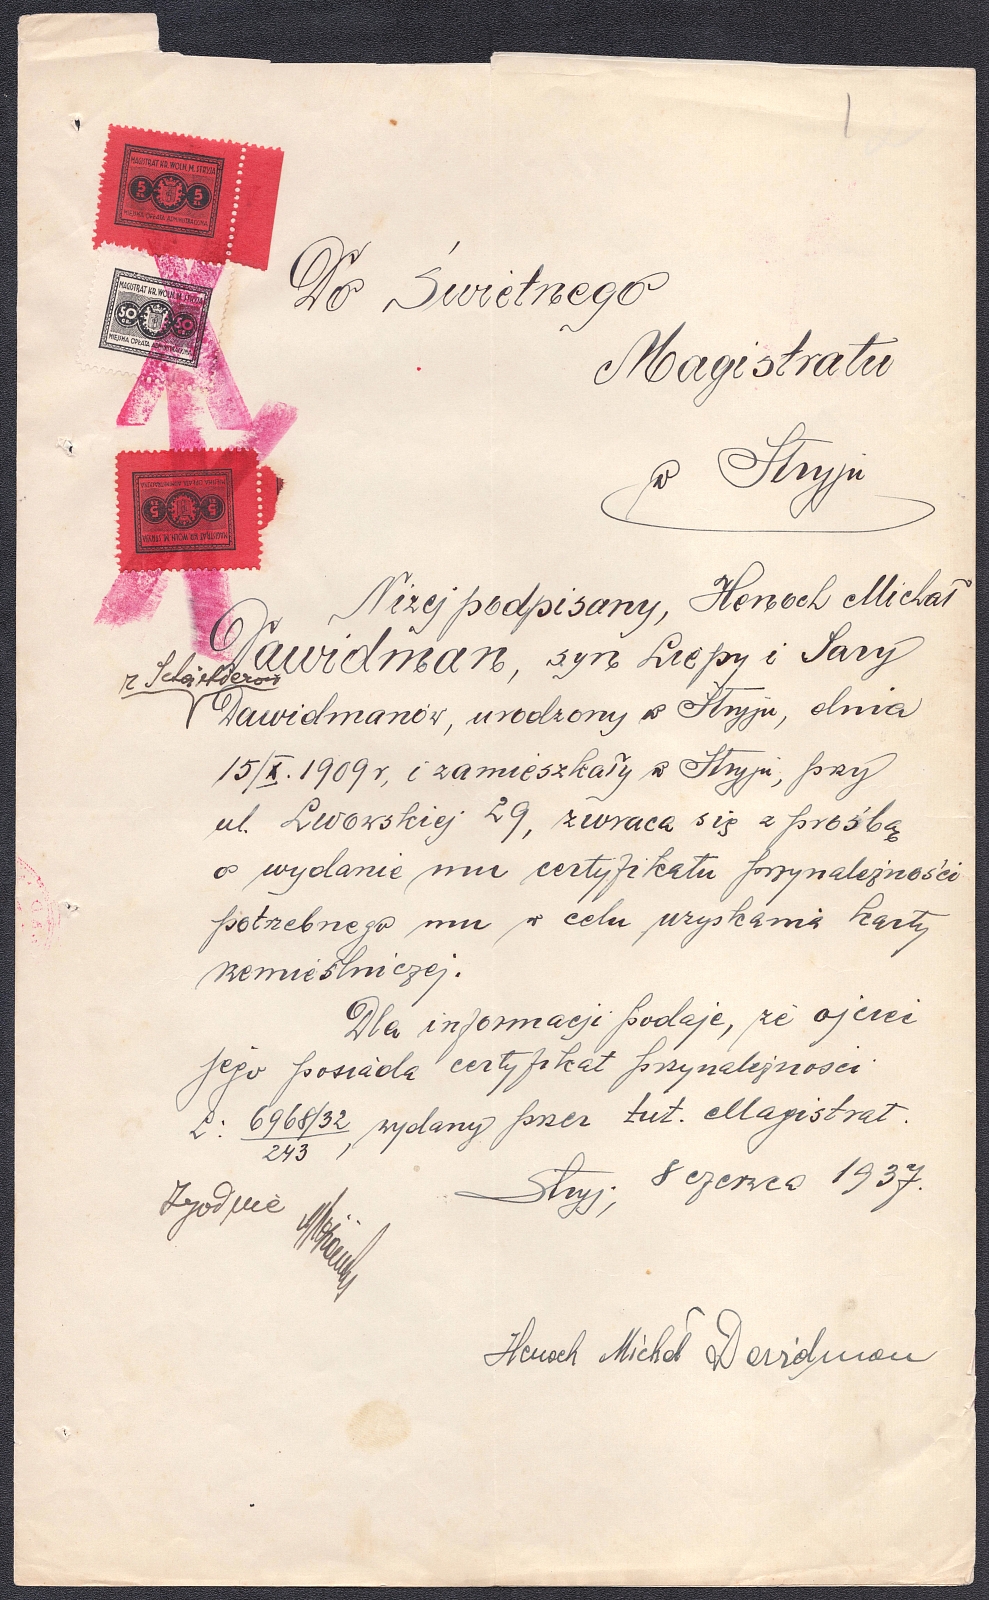 MAGISTRAT KR. WOLN. M. STRYJA
5 5
MIEJSKA OPŁATA ADMINISTRACYJNA
MAGISTRAT KR. WOLN. M. STRYJA
50 50
MIEJSKA OPŁATA ADMINISTRACYJNA
MAGISTRAT KR. WOLN. M. STRYJA
5 5
MIEJSKA OPŁATA ADMINISTRACYJNA
Do Świetnego
Magistratu
w Stryju
Niżej podpisany, Henoch Michał
Dawidman, syn Liepy i Sary
z Scheinderów
Dawidmanów, urodzony w Stryju, dnia
15/X. 1909 r, i zamieszkały w Stryju, przy
ul. Lwowskiej 29, zwraca się z prośbą
o wydanie mu certyfikatu przynależności
potrzebnego mu w celu uzyskania karty
rzemieślniczej.
Dla informacji podaje, że ojciec
jego posiada certyfikat przynależności
L: 6968/32
243
, wydany przez tut. Magistrat.
Stryj, 8 czerwca 1937.
Zgodnie
Henoch Michał Dawidman